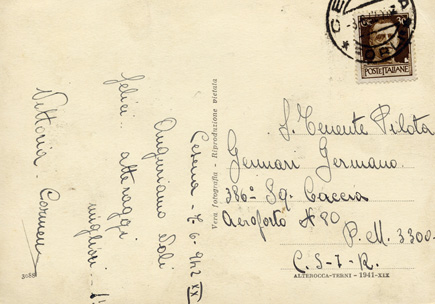 Cesena - 2.6.942 XX
Auguriamo voli
felici: atteraggi
migliori!!
Vittoria - Cormen
Vera fotografia - Riproduzione vietata
POSTE ITALIANE
S. Tenente Pilota
Gennari Germano
386ª Sq. Caccia
Aeroporto N 80
P. M. 3300
C. S. I. R.
ALTEROCCA-TERNI - 1941-XIX